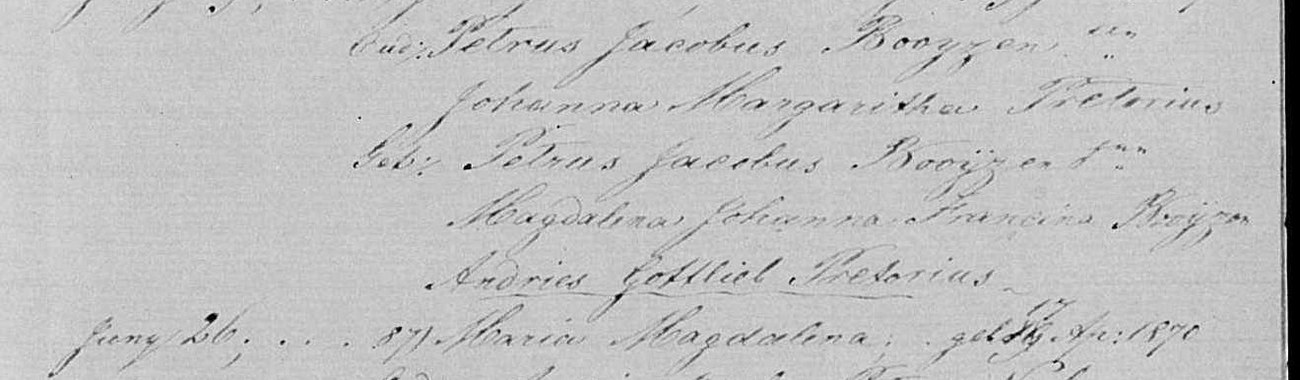 Oud: Petrus Jacobus Booyzen sen
Johanna Margaritha Pretorius
Get: Petrus Jacobus Booÿzen jun
Magdalena Johanna Francina Booÿzen
Andries Gottlieb Pretorius
Juny 26. . . . 87) Maria Magdalena, . geb 17 Ap: 1870